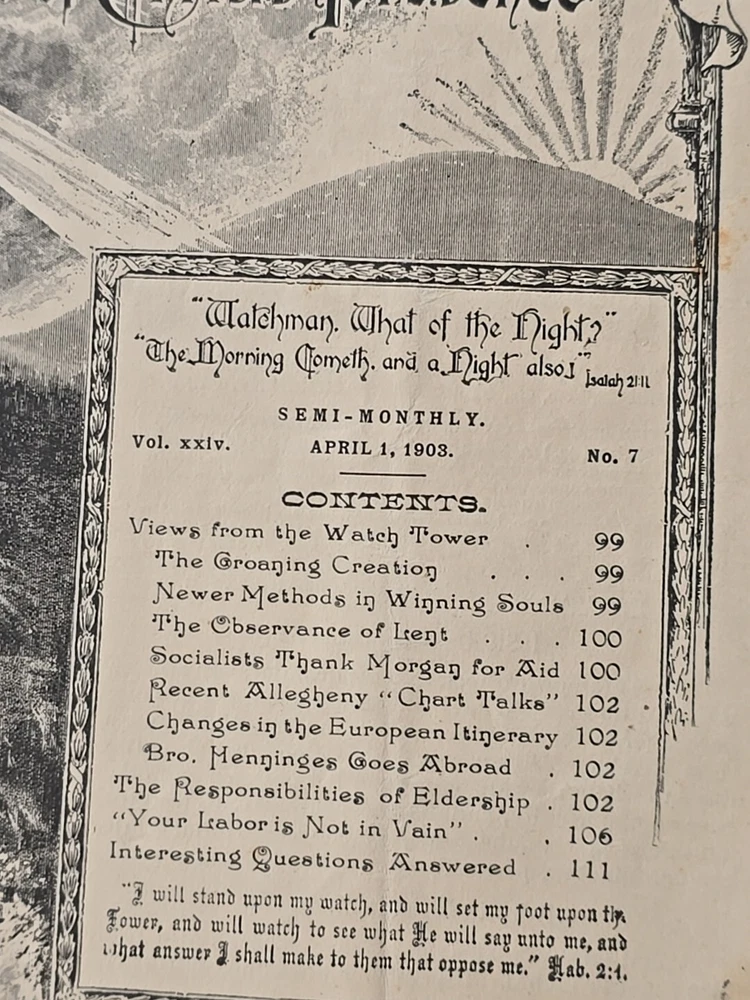 "Watchman, What of the Night?"
"The Morning Cometh, and a Night also!" Isaiah 21:11
SEMI-MONTHLY.
Vol. xxiv. APRIL 1, 1903. No. 7
CONTENTS.
Views from the Watch Tower . 99
The Groaning Creation . . . 99
Newer Methods in Winning Souls 99
The Observance of Lent . . . 100
Socialists Thank Morgan for Aid 100
Recent Allegheny "Chart Talks" 102
Changes in the European Itinerary 102
Bro. Henninges Goes Abroad . 102
The Responsibilities of Eldership . 102
"Your Labor is Not in Vain" . . 106
Interesting Questions Answered . 111
"I will stand upon my watch, and will set my foot upon the
Tower, and will watch to see what He will say unto me, and
what answer I shall make to them that oppose me." Hab. 2:1.